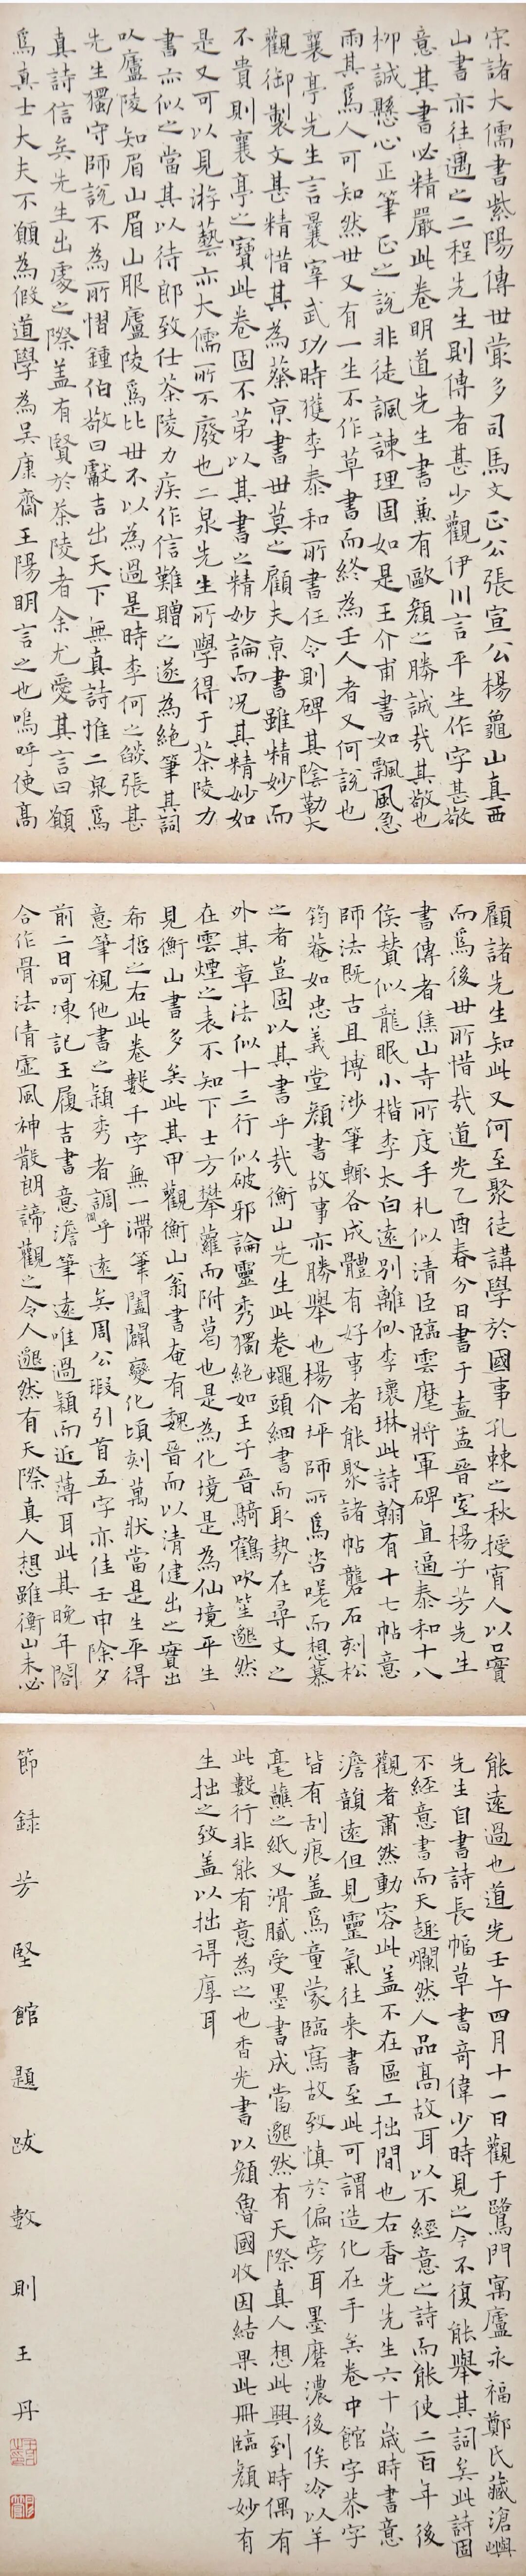 宋諸大儒書紫陽傳世最多司馬文正公張宣公楊龜山真西
山書亦往遇之二程先生則傳者甚少觀伊川言平生作字甚敬
意其書必精嚴此卷明道先生書兼有歐顏之勝誠哉其敬也
柳誠懸心正筆正之說非徒諷諫理固如是王介甫書如飄風急
雨其爲人可知然世又有一生不作草書而終為壬人者又何說也
襄亭先生言曩宰武功時獲李泰和所書任令則碑其陰勒大
觀御製文甚精惜其為蔡京書世莫之顧夫京書雖精妙而
不貴則襄亭之寶此卷固不第以其書之精妙論而况其精妙如
是又可以見游藝亦大儒所不廢也二泉先生所學得于茶陵力
書亦似之當其以待郎致仕茶陵力疾作信難贈之遂為絕筆其詞
以廬陵知眉山眉山服廬陵爲比世不以為過是時李何之燄張甚
先生獨守師說不為所慴鍾伯敬曰獻吉出天下無真詩惟二泉爲
真詩信矣先生出處之際蓋有賢於茶陵者余尤愛其言曰願
爲真士大夫不願為假道學為吳康齋王陽明言之也嗚呼使高
顧諸先生知此又何至聚徒講學於國事孔棘之秋授宵人以口實
而爲後世所惜哉道光乙酉春分日書于盍孟晉室楊子芳先生
書傳者焦山寺所庋手札似清臣臨雲麾將軍碑直逼泰和十八
侯贊似龍眠小楷李太白遠別離似李瓌琳此詩翰有十七帖意
師法既古且博涉筆輒各成體有好事者能聚諸帖礱石刻松
筠菴如忠義堂顏書故事亦勝舉也楊介坪師所爲咨嗟而想慕
之者豈固以其書乎哉衡山先生此卷蠅頭細書而取勢在尋丈之
外其章法似十三行似破邪論靈秀獨絕如王子晉騎鶴吹笙邈然
在雲煙之表不知下士方攀蘿而附葛也是為化境是為仙境平生
見衡山書多矣此其甲觀衡山翁書奄有魏晉而以清健出之實出
希哲之右此卷數千字無一滯筆闔闢變化頃刻萬狀當是生平得
意筆視他書之穎秀者調乎遠矣周公瑕引首五字亦佳壬申除夕
前二日呵凍記王履吉書意澹筆遠唯過穎而近薄耳此其晚年閣
合作骨法清虛風神散朗諦觀之令人邈然有天際真人想雖衡山未必
能遠過也道光壬午四月十一日觀于鷺門寓廬永福鄭氏藏滄嶼
先生自書詩長幅草書奇偉少時見之今不復能舉其詞矣此詩固
不經意書而天趣爛然人品高故耳以不經意之詩而能使二百年後
觀者肅然動容此蓋不在區工拙間也右香光先生六十歲時書意
澹韻遠但見靈氣往来書至此可謂造化在手矣卷中館字恭字
皆有刮痕蓋爲童蒙臨寫故致慎於偏旁耳墨磨濃後俟冷以羊
毫蘸之紙又滑膩受墨書成當邈然有天際真人想此興到時偶有
此數行非能有意為之也香光書以顏魯國收因結果此冊臨顏妙有
生拙之致蓋以拙得厚耳
節録芳堅館題跋數則王丹